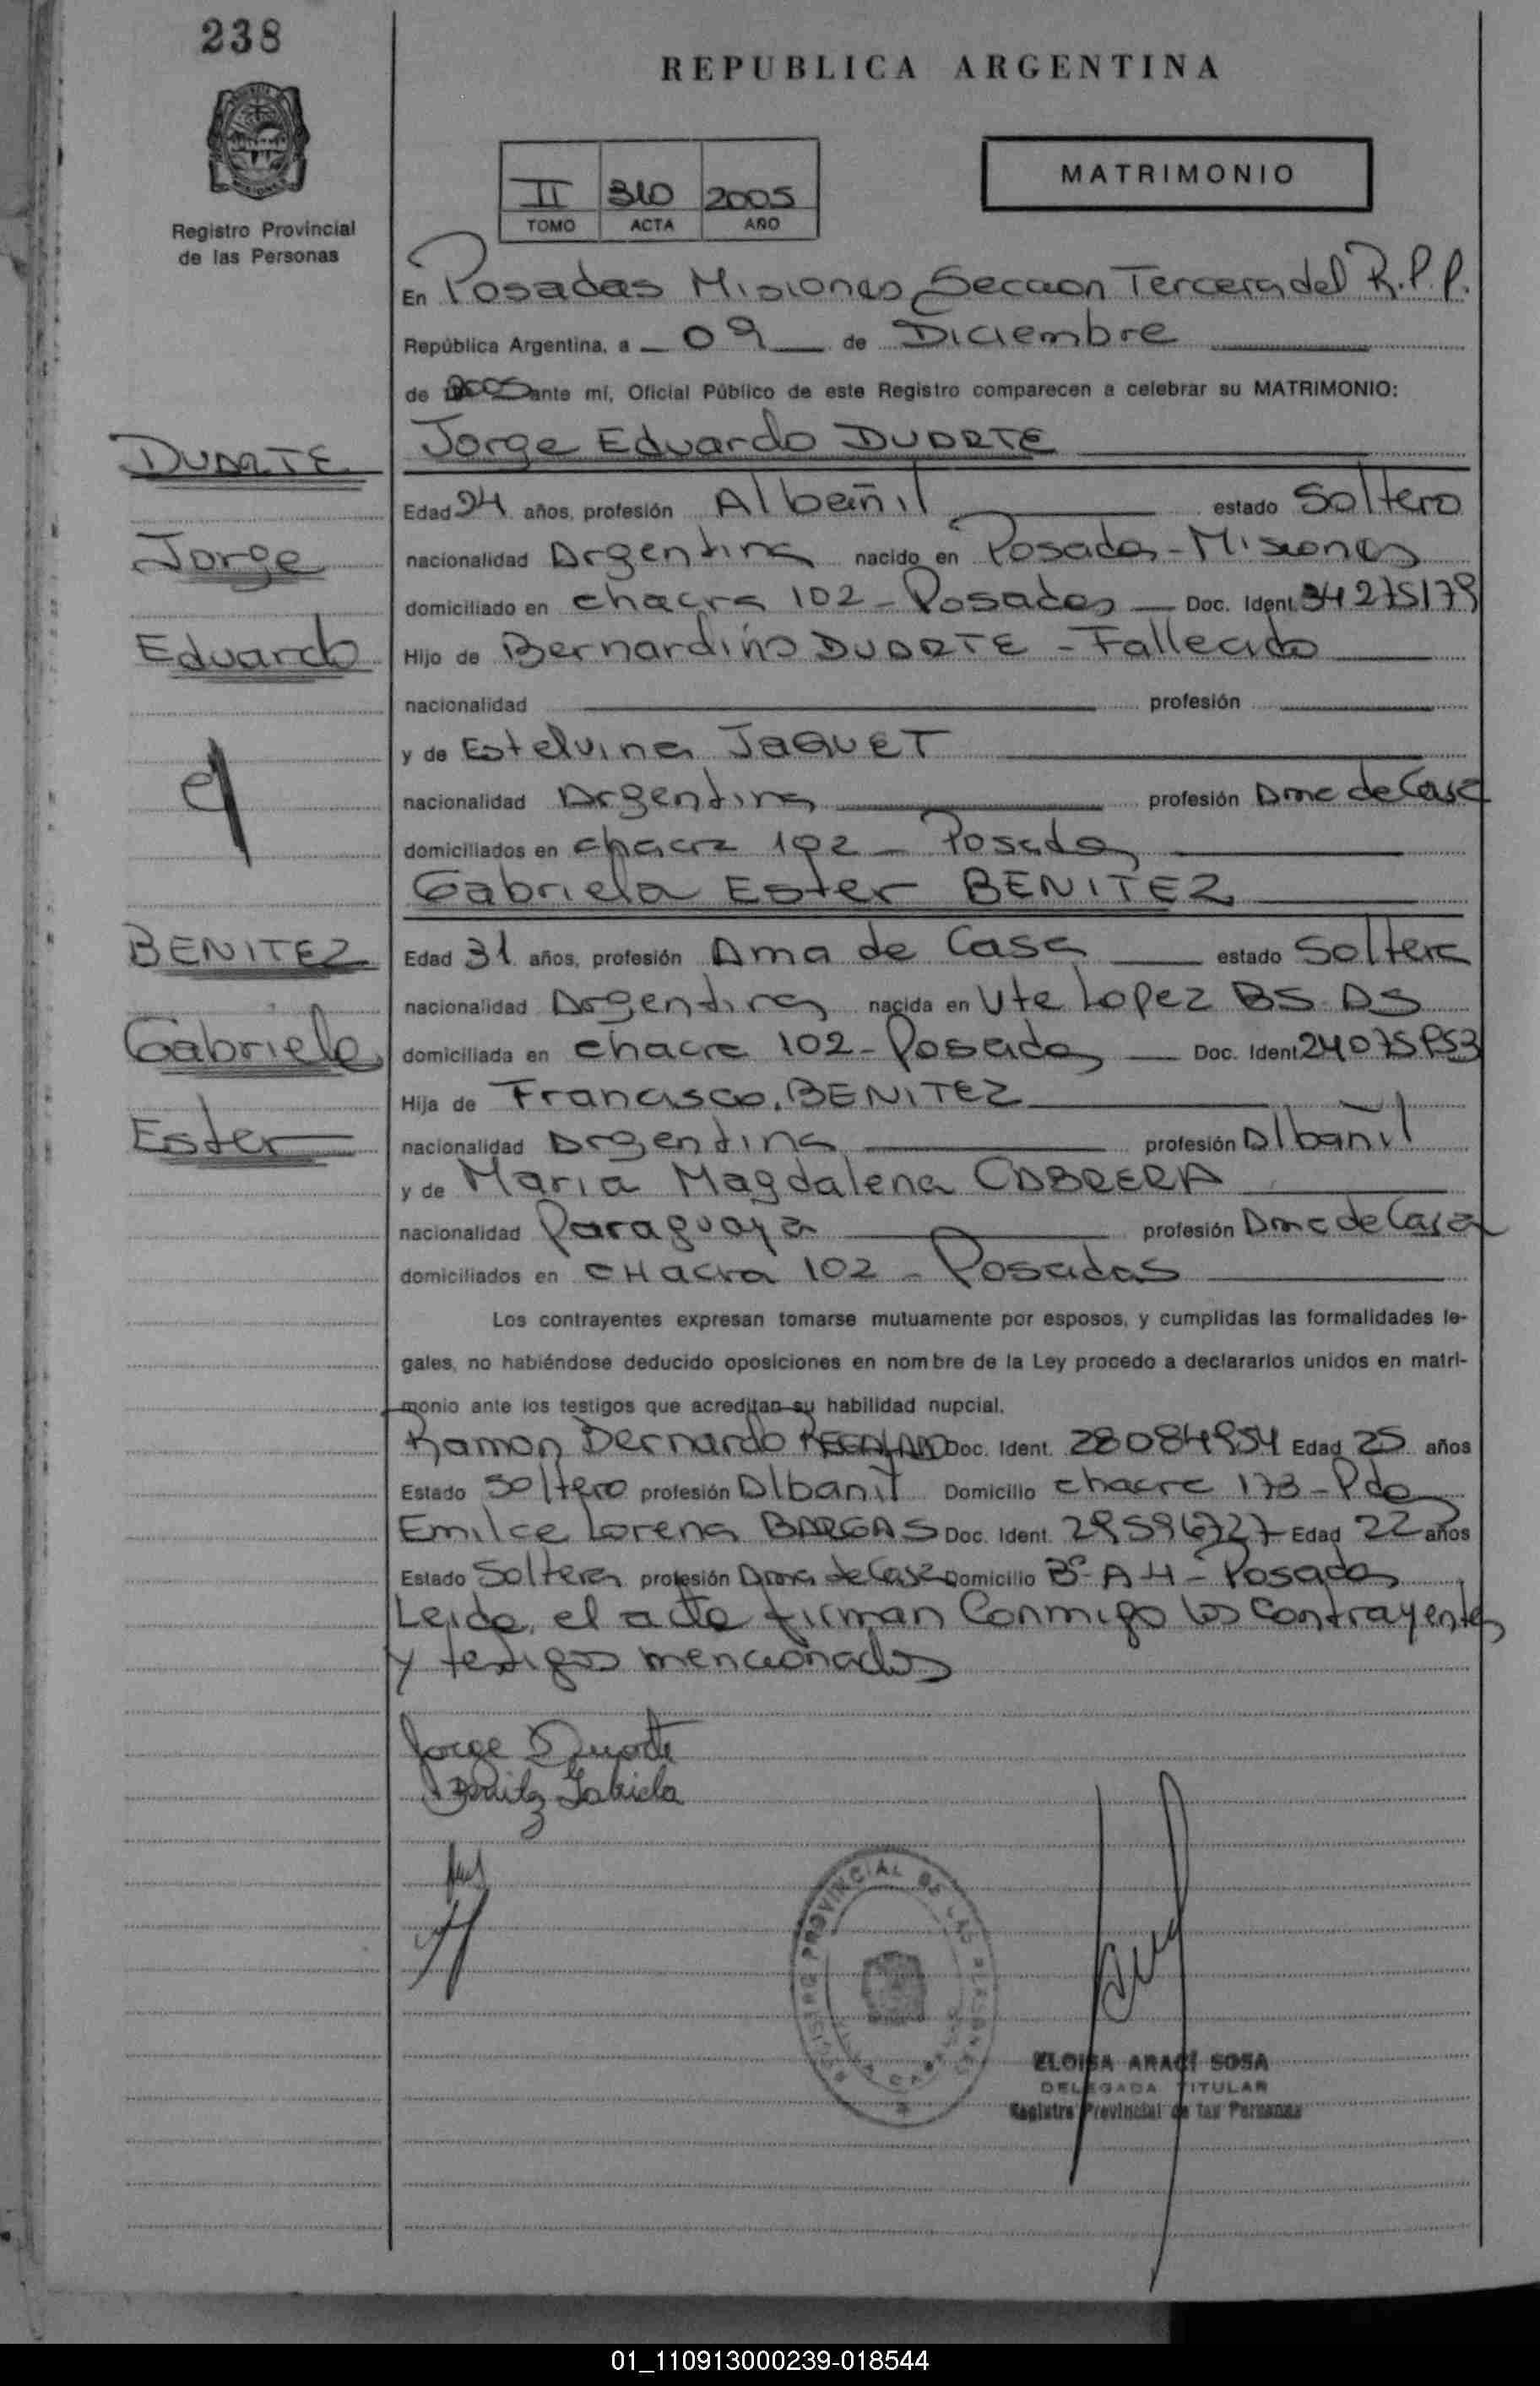 238
REPUBLICA ARGENTINA
MATRIMONIO
II 310 2005
TOMO ACTA AÑO
Registro Provincial
de las Personas
En Posadas Misiones Seccion Tercera del R.P.P.
República Argentina, a 09 de Diciembre
de 2005 ante mí, Oficial Público de este Registro comparecen a celebrar su MATRIMONIO:
DUARTE
Jorge Eduardo DUARTE
Edad 24 años, profesión Albañil estado Soltero
Jorge
nacionalidad Argentina nacido en Posadas - Misiones
domiciliado en chacra 102 - Posadas Doc. Ident. 34275179
Eduardo
Hijo de Bernardino DUARTE - Fallecido
nacionalidad profesión
y de Estelvina JAQUET
nacionalidad Argentina profesión Ama de Casa
domiciliados en chacra 102 - Posadas
Gabriela Ester BENITEZ
BENITEZ
Edad 31 años, profesión Ama de Casa estado Soltera
nacionalidad Argentina nacida en Vte Lopez BS AS
Gabriela
domiciliada en chacra 102 - Posadas Doc. Ident.
Hija de Francisco BENITEZ
Ester
nacionalidad Argentina profesión Albañil
y de Maria Magdalena CABRERA
nacionalidad Paraguaya profesión Ama de Casa
domiciliados en CHacra 102 - Posadas
Los contrayentes expresan tomarse mutuamente por esposos, y cumplidas las formalidades le-
gales, no habiéndose deducido oposiciones en nombre de la Ley procedo a declararlos unidos en matri-
monio ante los testigos que acreditan su habilidad nupcial.
Ramon Bernardo Doc. Ident. 28084954 Edad 25 años
Estado Soltero profesión Albanil Domicilio chacra 173 - Pdas
Emilce Lorena BARGAS Doc. Ident. 29596727 Edad 22 años
Estado Soltera profesión Ama de Casa Domicilio Bº A 4 - Posadas
Leida, el acta firman Conmigo los Contrayentes
y testigos mencionados
Jorge Duarte
Benitez Gabriela
REGISTRO PROVINCIAL DE LAS PERSONAS
ELOISA ARACI SOSA
DELEGADA TITULAR
Registro Provincial de las Personas
01_110913000239-018544